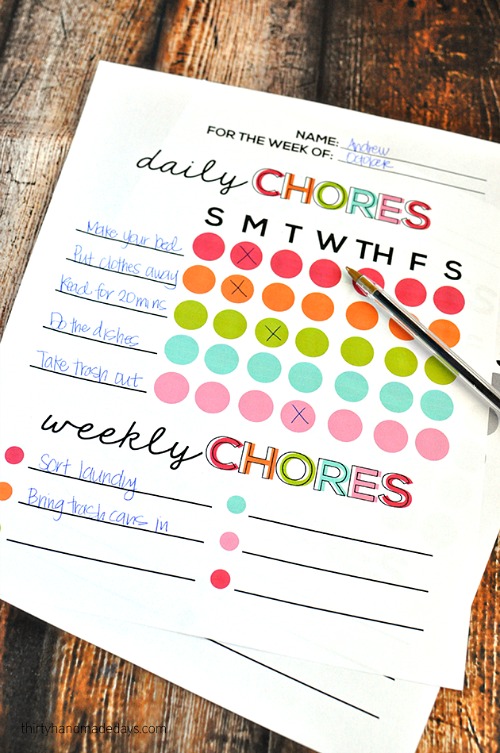 NAME: Andrew
FOR THE WEEK OF: October
daily CHORES
S M T W TH F S
Make your bed
Put clothes away
Read for 20 mins
Do the dishes
Take trash out
weekly CHORES
Sort laundry
Bring trash cans in
thirtyhandmadedays.com